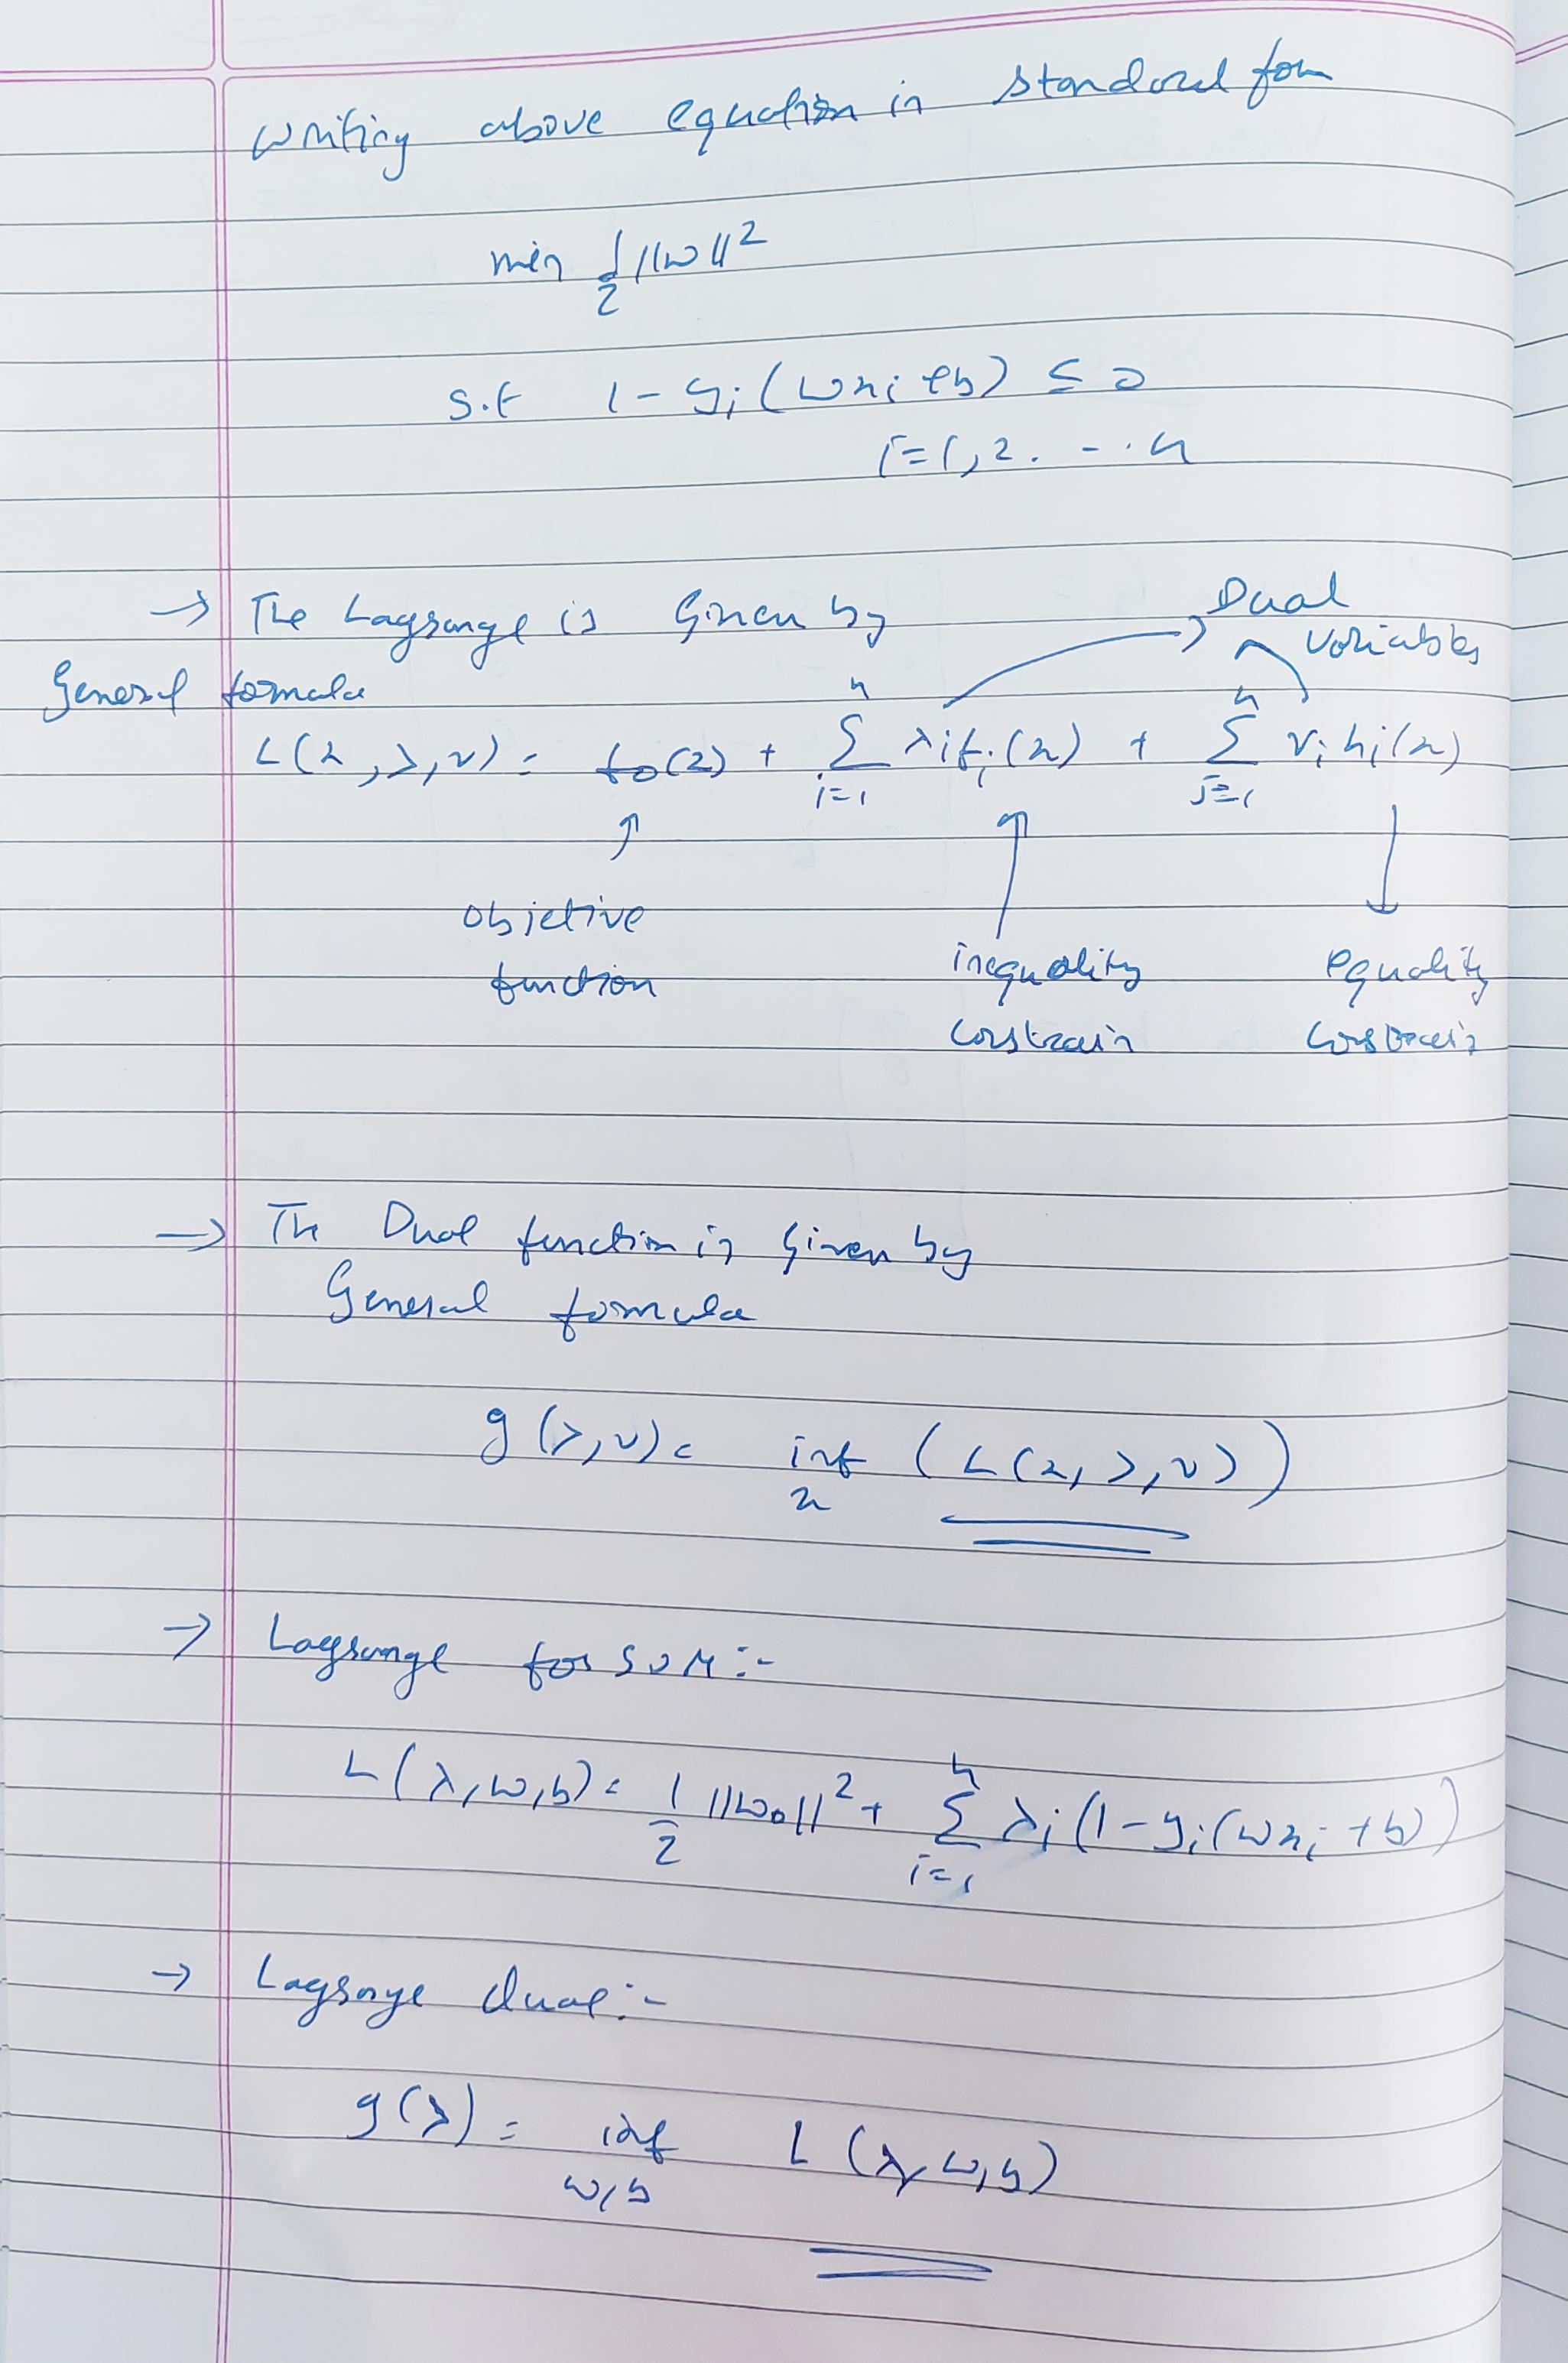 writing above equation in standard form
min 1/2 ||w||²
s.t 1 - yi (wxi + b) ≤ 0
i = 1, 2. - . . n
→ The Lagrange is Given by
Dual variables
General formula
L(x, λ, ν) = f0(x) + Σ_{i=1}^{n} λi fi(x) + Σ_{j=1}^{n} νi hi(x)
objetive function
inequality constrain
equality constrain
→ The Dual function is Given by
General formula
g(λ, ν) = inf_x (L(x, λ, ν))
→ Lagrange for SVM :-
L(λ, w, b) = 1/2 ||w||² + Σ_{i=1}^{n} λi (1 - yi (wxi + b))
→ Lagrange dual :-
g(λ) = inf_{w, b} L(λ, w, b)